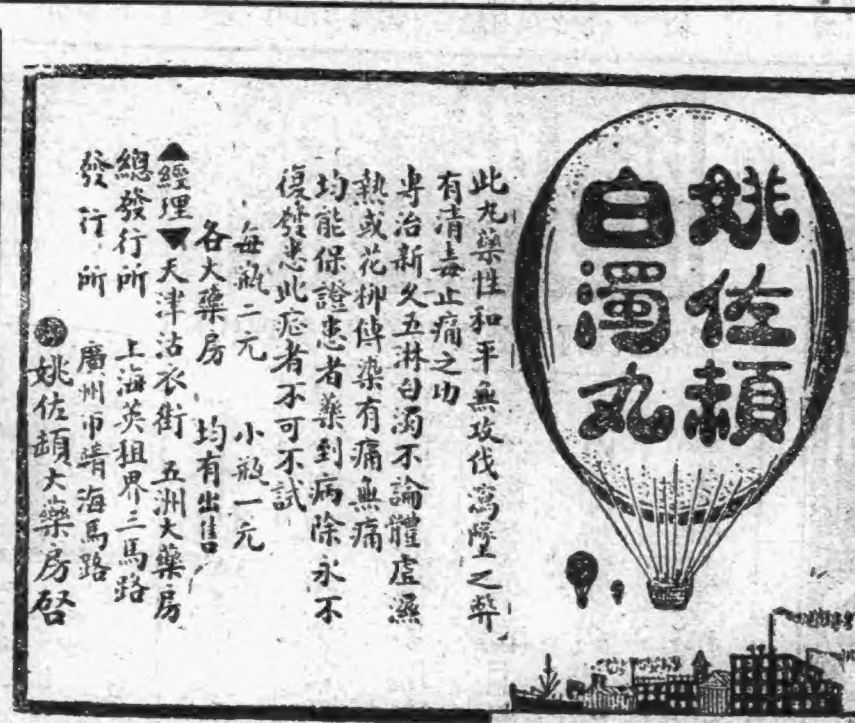 姚佐頳
白濁丸
此丸藥性和平無攻伐瀉墜之弊
有清毒止痛之功
專治新久五淋白濁不論體虛濕
熱或花柳傳染有痛無痛
均能保證患者藥到病除永不
復發患此症者不可不試
每瓶二元　小瓶一元
各大藥房　均有出售
▲經理▼天津沽衣街　五洲大藥房
總發行所　上海英租界三馬路
發行所　廣州市靖海馬路
姚佐頳大藥房啓